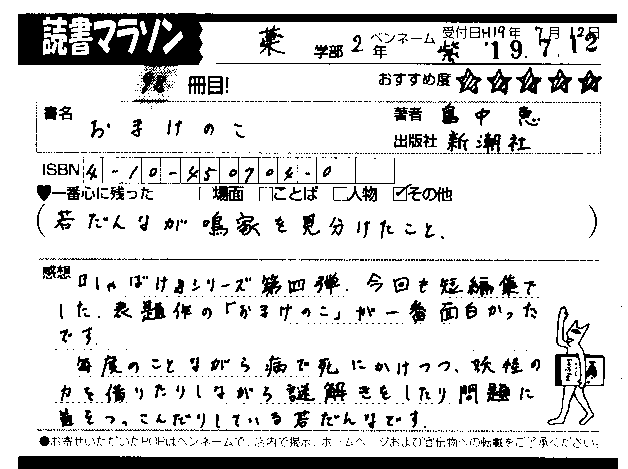 読書マラソン
薬 学部 2 年 ペンネーム 紫 受付日 H19年 7月 12日
'19.7.12
98 冊目! おすすめ度 ☆☆☆☆☆
書名 おまけのこ 著者 畠中 恵
出版社 新潮社
ISBN 4-10-450704-0
♥一番心に残った □場面 □ことば □人物 ☑その他
(若だんなが鳴家を見分けたこと。)
感想 『しゃばけ』シリーズ第四弾。今回も短編集で
した。表題作の「おまけのこ」が一番面白かった
です。
毎度のことながら病で死にかけつつ、妖怪の
力を借りたりしながら謎解きをしたり問題に
首をつっこんだりしている若だんなです。
●お寄せいただいたPOPはペンネームで、店内で掲示、ホームページおよび宣伝物への転載をご了承ください。